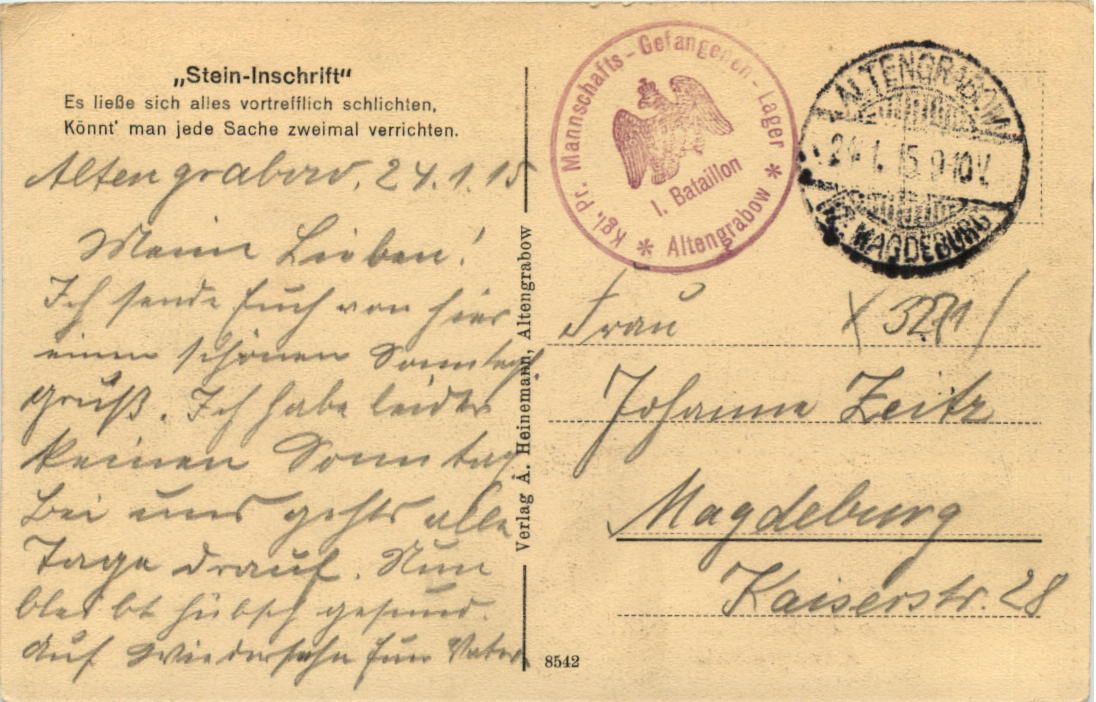 „Stein-Inschrift“
Es ließe sich alles vortrefflich schlichten,
Könnt' man jede Sache zweimal verrichten.
Altengrabow, 24.1.15
Meine Lieben!
Ich sende Euch von hier
einen schönen Sonntags
gruß. Ich habe leider
keinen Sonntag
Bei uns gehts alle
Tage drauf. Nun
bleibt hübsch gesund.
Auf Wiedersehn Euer Vater
Verlag A. Heinemann, Altengrabow
8542
Kgl. Pr. Mannschafts-Gefangenen-Lager
I. Bataillon
* Altengrabow *
ALTENGRABOW
24.1.15.9-10V.
BZ. MAGDEBURG
Frau
Johanne Zeitz
Magdeburg
Kaiserstr. 28